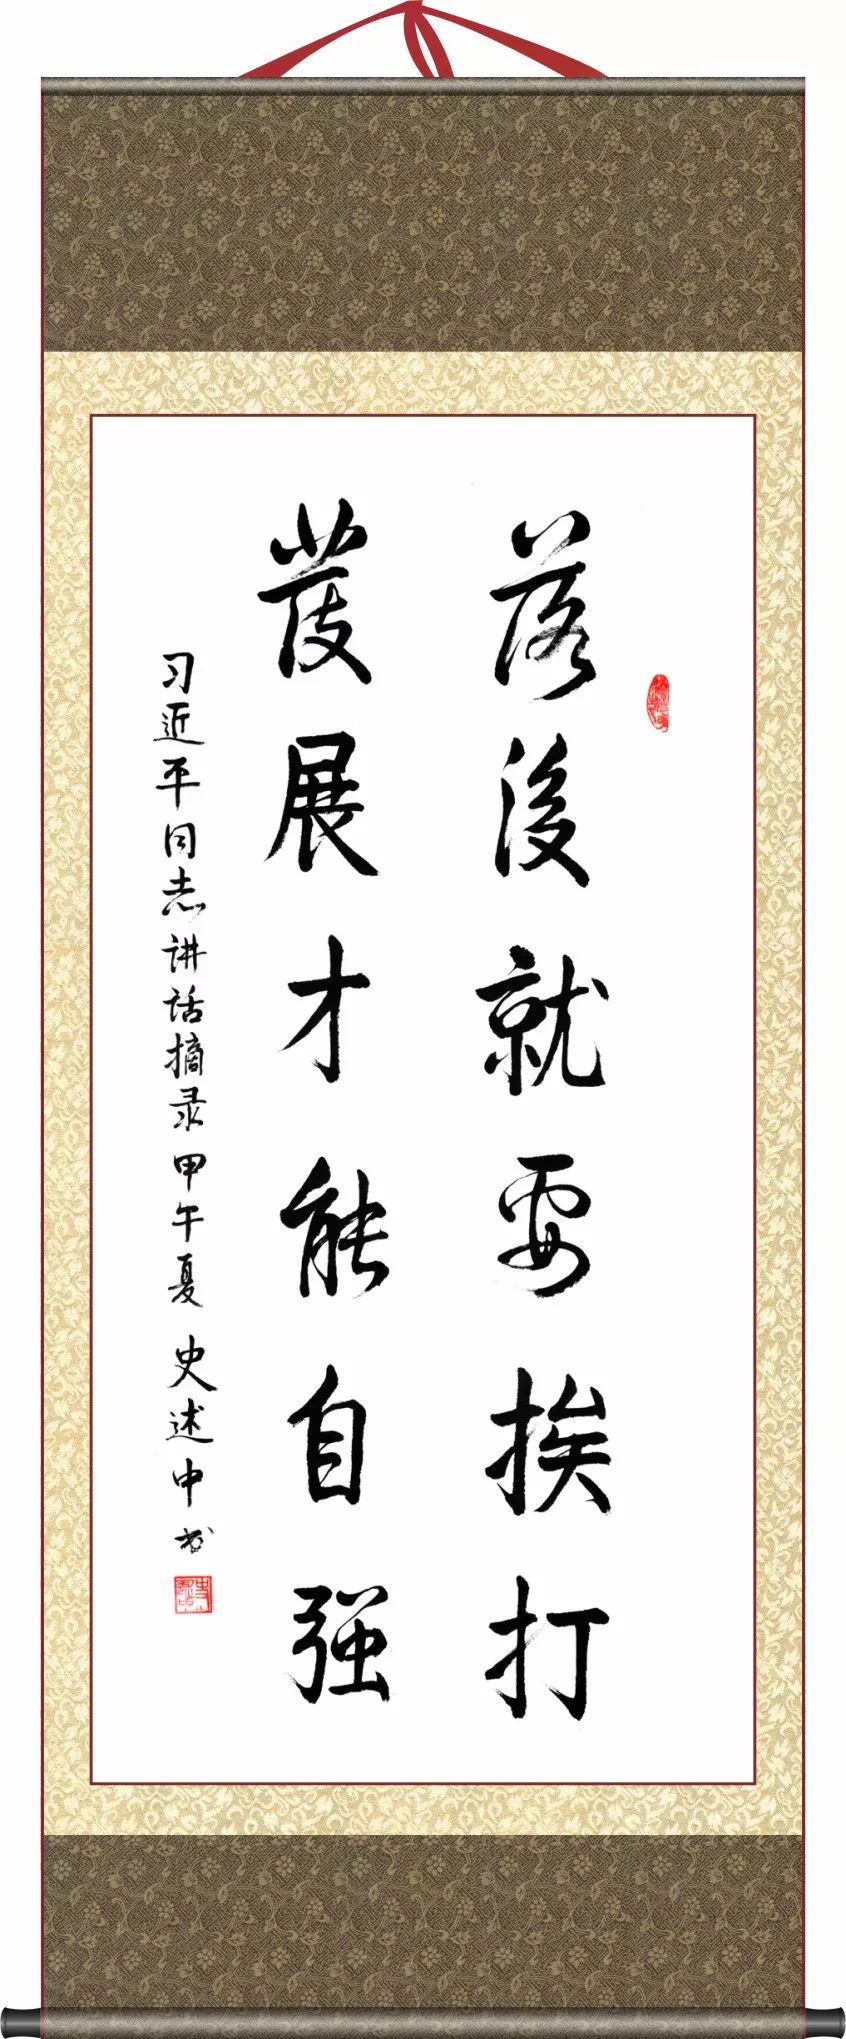 落後就要挨打
發展才能自强
习近平同志讲话摘录甲午夏史述中书